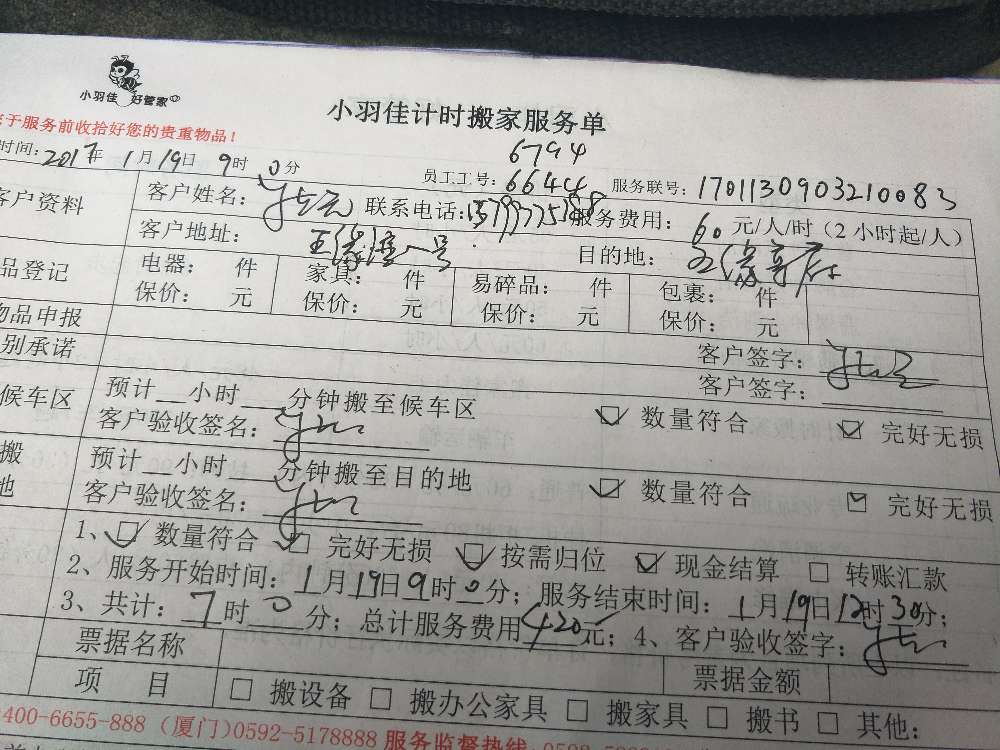 小羽佳 好管家
小羽佳计时搬家服务单
于服务前收拾好您的贵重物品！
6794
时间：2017年1月19日9时0分 员工工号：6644 服务联号：17011309032100083
客户资料 客户姓名： 联系电话： 服务费用：60元/人/时（2小时起/人）
客户地址： 目的地：
品登记 电器： 件 家具： 件 易碎品： 件 包裹： 件
保价： 元 保价： 元 保价： 元 保价： 元
物品申报 客户签字：
别承诺 客户签字：
候车区 预计__小时__分钟搬至候车区 数量符合 完好无损
客户验收签名：
搬 预计__小时__分钟搬至目的地 数量符合 完好无损
地 客户验收签名：
1、 数量符合 完好无损 按需归位 现金结算 转账汇款
2、服务开始时间：1月19日9时0分；服务结束时间：1月19日12时30分；
3、共计：7时0分；总计服务费用420元；4、客户验收签字：
票据名称 票据金额
项 目 搬设备 搬办公家具 搬家具 搬书 其他：
400-6655-888（厦门）0592-5178888 服务监督热线：